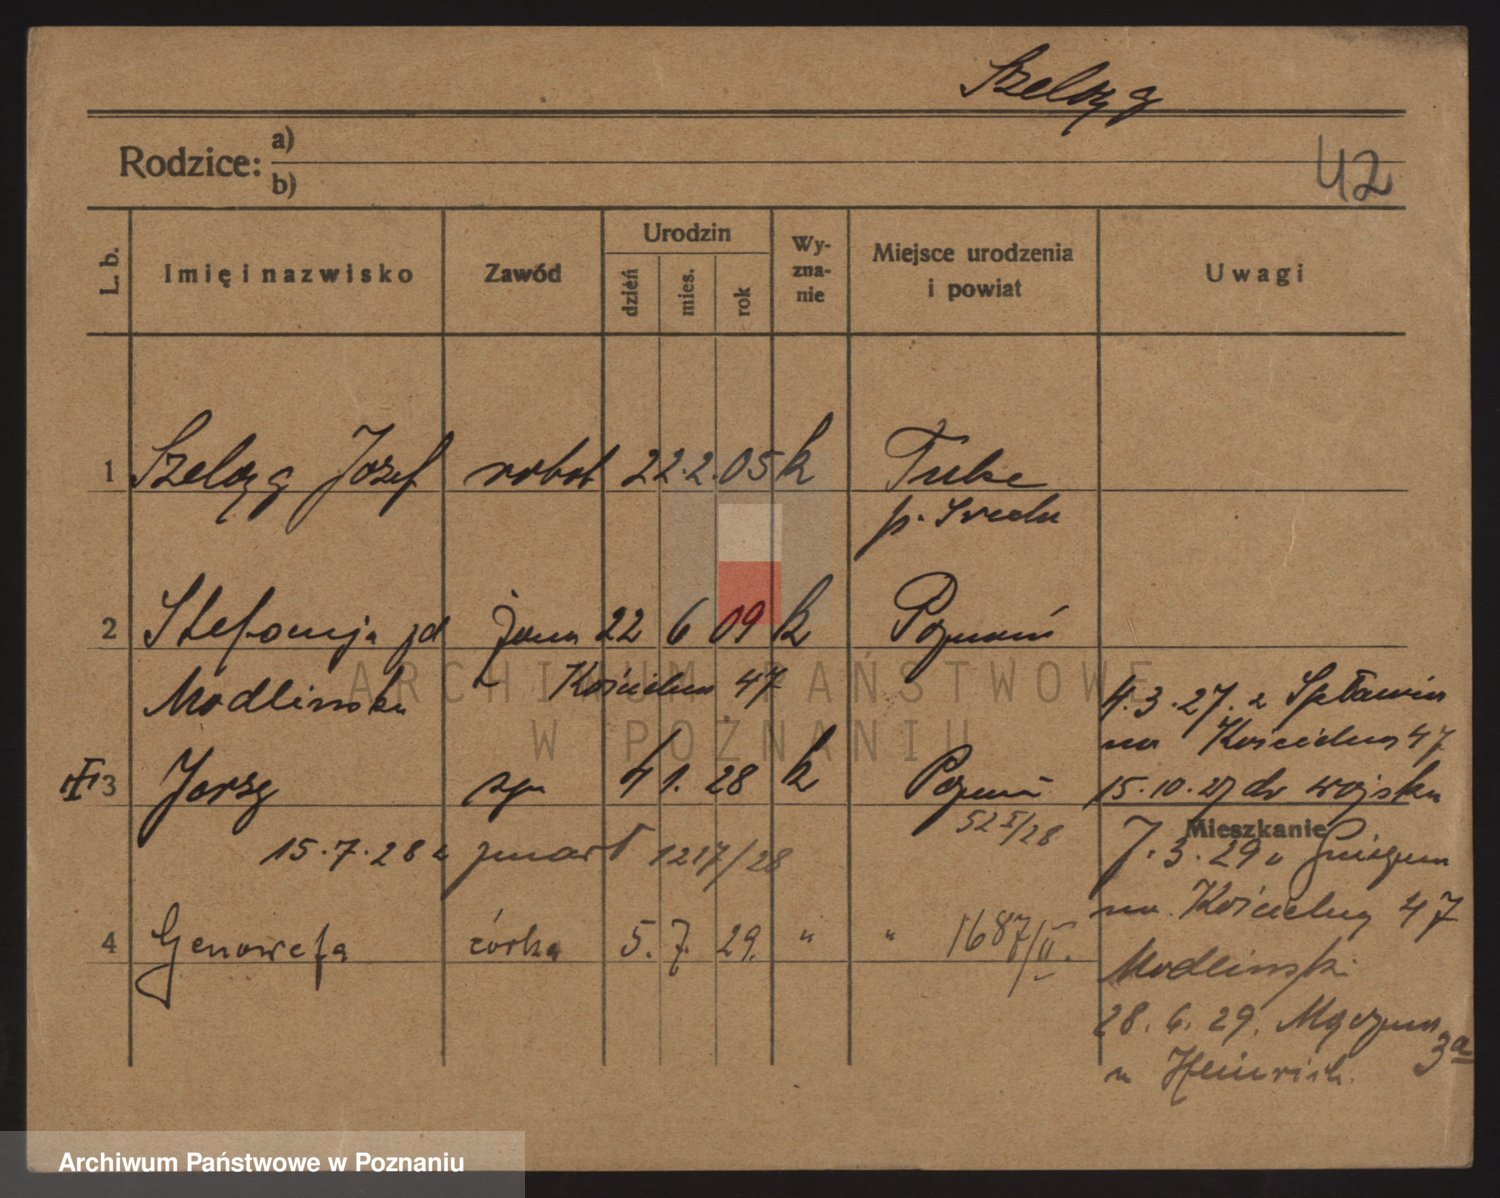 Szeląg
Rodzice: a)
b)
42
L. b.
Imię i nazwisko
Zawód
Urodzin
dzień
mies.
rok
Wy-
zna-
nie
Miejsce urodzenia
i powiat
Uwagi
1 Szeląg Józef robot 22.2.05 k
p. Środa
2 Stefanja zd żona 22 6 09 k Poznań
Modlinska Kościelna 47
4.3.27. z Spławia
na Kościelna 47
3 Jerzy syn 4 1. 28 k Poznań
15.10.27 do wojska
52 I/28
Mieszkanie
15.7.28 zmarł 1217/28
7.3.29 z Gniezna
na Kościelną 47
4 Genowefa córka 5. 7. 29. " " 1687/II.
Modlinski
28.6.29. Mączna 3a
u Heinrich.
ARCHIWUM PAŃSTWOWE
W POZNANIU
Archiwum Państwowe w Poznaniu